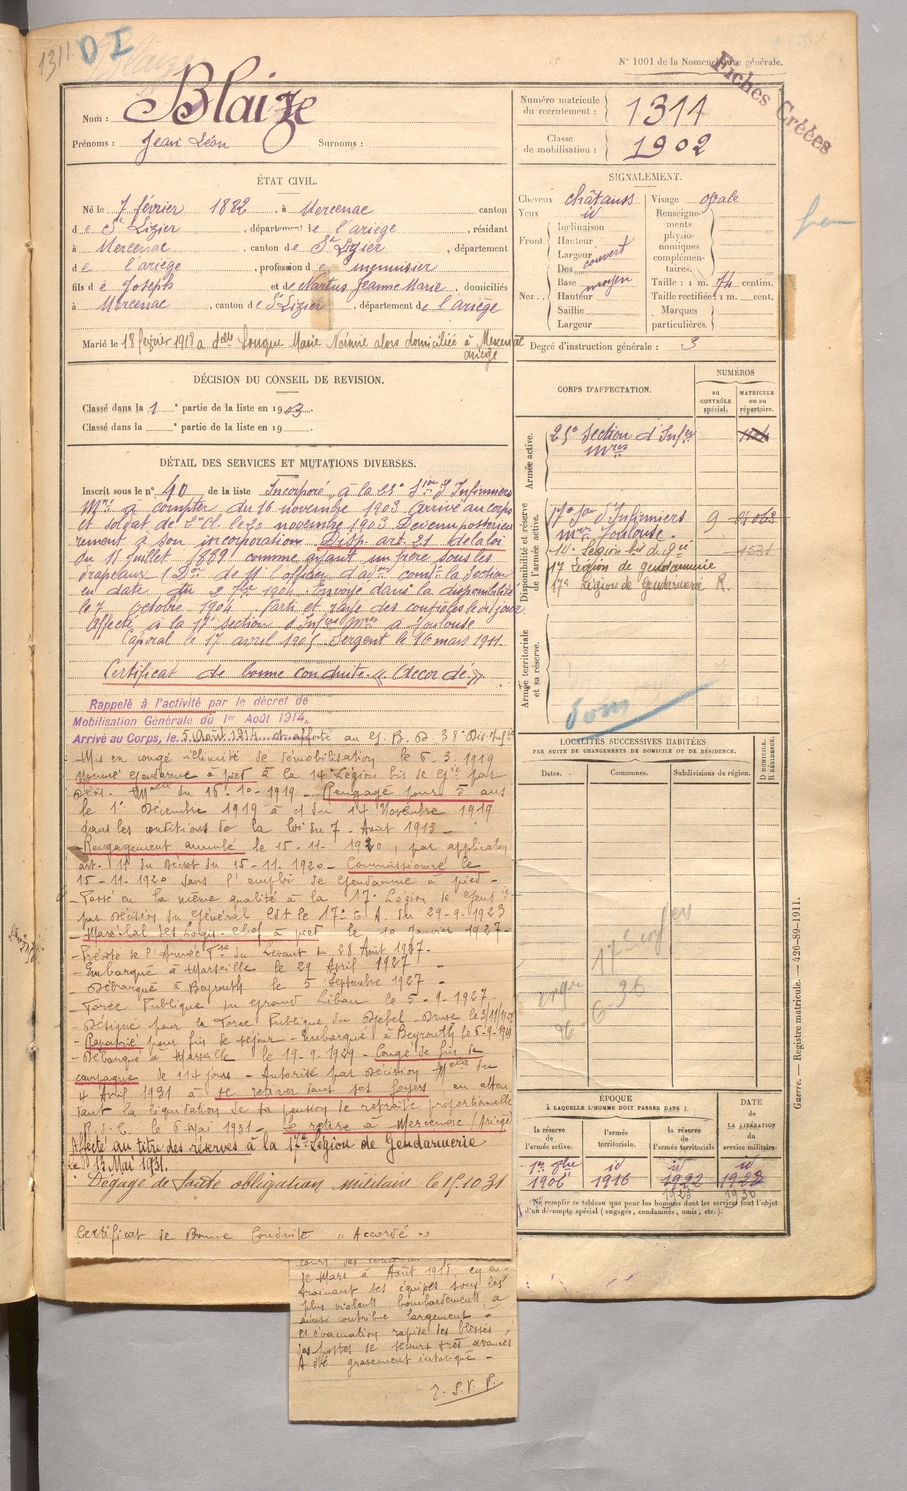 1311
D I
N° 1001 de la Nomenclature générale.
Fiches Créées
Nom : Blaize
Prénoms : Jean Léon Surnoms :
Numéro matricule du recrutement : 1311
Classe de mobilisation : 1902
ÉTAT CIVIL.
Né le 7 février 1882, à Mercenac canton
de St Lizier, département de l'ariège, résidant
à Mercenac, canton de St Lizier, département
de l'ariège, profession de menuisier
fils de Joseph et de Nartus Jeanne Marie, domiciliés
à Mercenac, canton de St Lizier, département de l'ariège
Marié le 18 février 1918 a delle Longue Marie Noémie alors domiciliée à Mercenac
ariège
DÉCISION DU CONSEIL DE REVISION.
Classé dans la 1e partie de la liste en 1903
Classé dans la e partie de la liste en 19
DÉTAIL DES SERVICES ET MUTATIONS DIVERSES.
Inscrit sous le n° 40 de la liste Incorporé à la 25e Son d'Infirmiers
Mres à compter du 16 novembre 1903 Arrivé au corps
et soldat de 2e Cl. le 20 novembre 1903 Devenu postérieu
rement à son incorporation Disp. art. 21 de la loi
du 15 juillet 1889 comme ayant un frère sous les
drapeaux (Don de Mr l'officier d'adon comt la Section
en date du 2 7bre 1904. Envoyé dans la disponibilité
le 7 octobre 1904. Parti et rayé des contrôles le dit jour
Affecté à la 17e section d'Infres Mres à Toulouse
Caporal le 17 avril 1905. Sergent le 16 mars 1911.
Certificat de bonne conduite « Accordé »
Rappelé à l'activité par le décret de
Mobilisation Générale du 1er Août 1914,
Arrivé au Corps, le 5 Août 1914 affecté au G. B. D. 38e Don Infie
Mis en congé illimité de démobilisation le 6.3.1919
Nommé Gendarme à pied à la 14e Légion bis de Gie par
Décon Melle du 16-10-1919 - Rengagé pour 5 ans
le 1er Décembre 1919 à c/ du 14 Novembre 1919
dans les conditions de la loi du 7 Août 1913 -
Rengagement annulé le 15-11-1920, par application
art. 11 du Décret du 15-11.1920 - Commissionné le
15-11-1920 dans l'emploi de Gendarme à pied -
Passé en la même qualité à la 17e Légion de Gend
par décision du Général Ct le 17e C. A. du 29-9-1923
Maréchal des Logis-Chef à pied le 10 Janvier 1927 -
Prévôté de l'Armée Fse du Levant du 28 Août 1927 -
Embarqué à Marseille le 29 1927 -
Débarqué à Beyrouth le 5 Septembre 1927 -
Force Publique du Grand Liban le 5-9-1927
Détaché pour la Force Publique du Djebel-Druse le
Rapatrié pour fin de séjour - Embarqué à Beyrouth le
Débarqué à Marseille le 19-9-1929 - Congé de fin de
campagne de 114 jours - Autorisé par décision Melle du
4 Avril 1931 à se retirer dans ses foyers en atten
dant la liquidation de sa pension de retraite proportionnelle
R. d. C. le 6 Mai 1931 - Se retire à Mercenac (Ariège)
Affecté au titre des réserves à la 17e Légion de Gendarmerie
Le 13 Mai 1931.
Dégagé de toute obligation militaire le 15.10.31
Certificat de Bonne Conduite " Accordé "
de Mars à Août 1918 en en-
trainant ses équipes sous les
plus violents bombardements, a
ainsi contribué largement à
l'évacuation rapide des blessés
des postes de secours très avancés
A été gravement intoxiqué -
T. S. V. P.
SIGNALEMENT.
Cheveux châtains
Yeux id
Front Inclinaison
Hauteur
Largeur
Dos couvert
Nez Base moyen
Hauteur
Saillie
Largeur
Visage ovale
Renseignements physionomiques complémentaires.
Taille : 1 m. 74 centim.
Taille rectifiée : 1 m. cent.
Marques particulières.
Degré d'instruction générale : 3
CORPS D'AFFECTATION.
NUMÉROS
au CONTRÔLE spécial.
MATRICULE ou au répertoire.
Armée active.
25e Section d'Infers
mres
Disponibilité et réserve de l'armée active.
17e Son d'Infirmiers
mres Toulouse 9
14e Légion bis de Gie
17 Légion de gendarmerie
17e Légion de Gendarmerie R.
Armée territoriale et sa réserve.
LOCALITÉS SUCCESSIVES HABITÉES
PAR SUITE DE CHANGEMENTS DE DOMICILE OU DE RÉSIDENCE.
Dates. Communes. Subdivisions de région. D DOMICILE. R RÉSIDENCE.
ÉPOQUE
À LAQUELLE L'HOMME DOIT PASSER DANS :
la réserve de l'armée active.
l'armée territoriale.
la réserve de l'armée territoriale
DATE
de la LIBÉRATION du service militaire.
1er 9bre 1906
id 1916
id 1922
id 1928
Ne remplir ce tableau que pour les hommes dont les services font l'objet
d'un décompte spécial (engagés, condamnés, omis, etc.).
Guerre. — Registre matricule. — 426-89-1911.